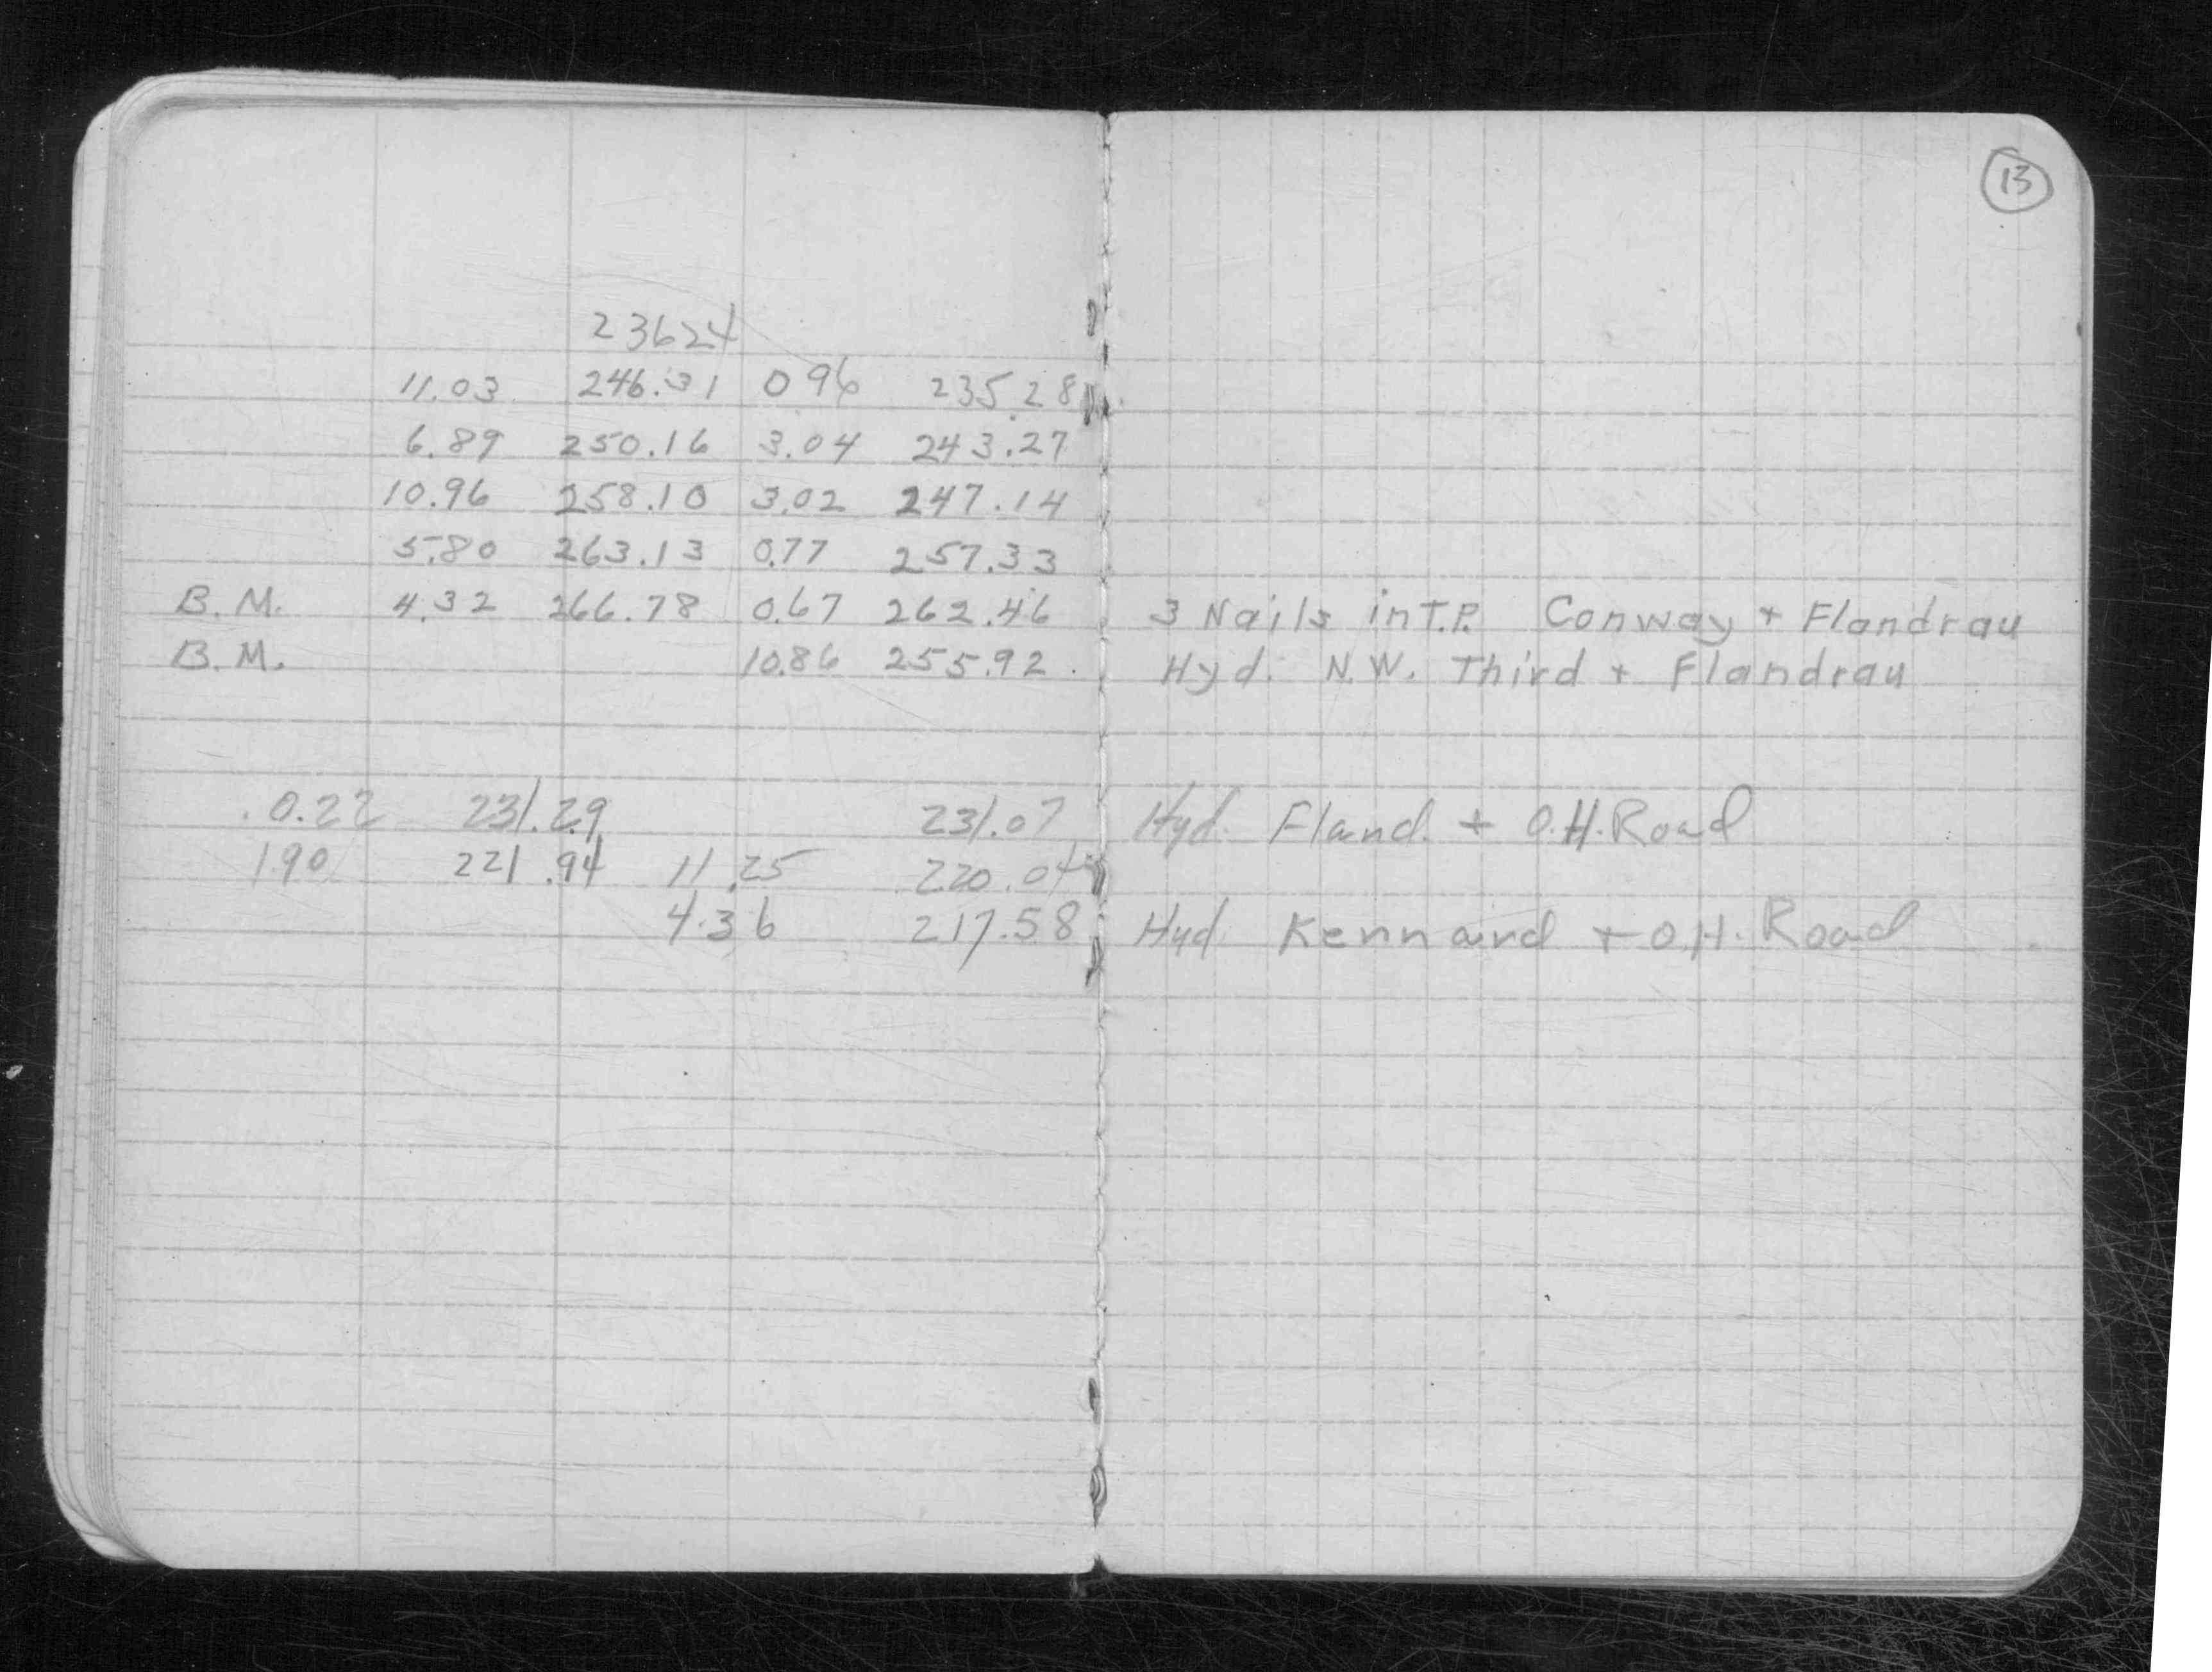 13
23624
11.03 246.31 0 96 235.28
6.89 250.16 3.04 243.27
10.96 258.10 3.02 247.14
5.80 263.13 0.77 257.33
B.M. 4.32 266.78 0.67 262.46 3 Nails in T.P. Conway + Flandrau
B.M. 10.86 255.92 Hyd. N.W. Third + Flandrau
0.22 231.29 231.07 Hyd. Fland. + O.H. Road
1.90 221.94 11.25 220.04
4.36 217.58 Hyd Kennard + O.H. Road